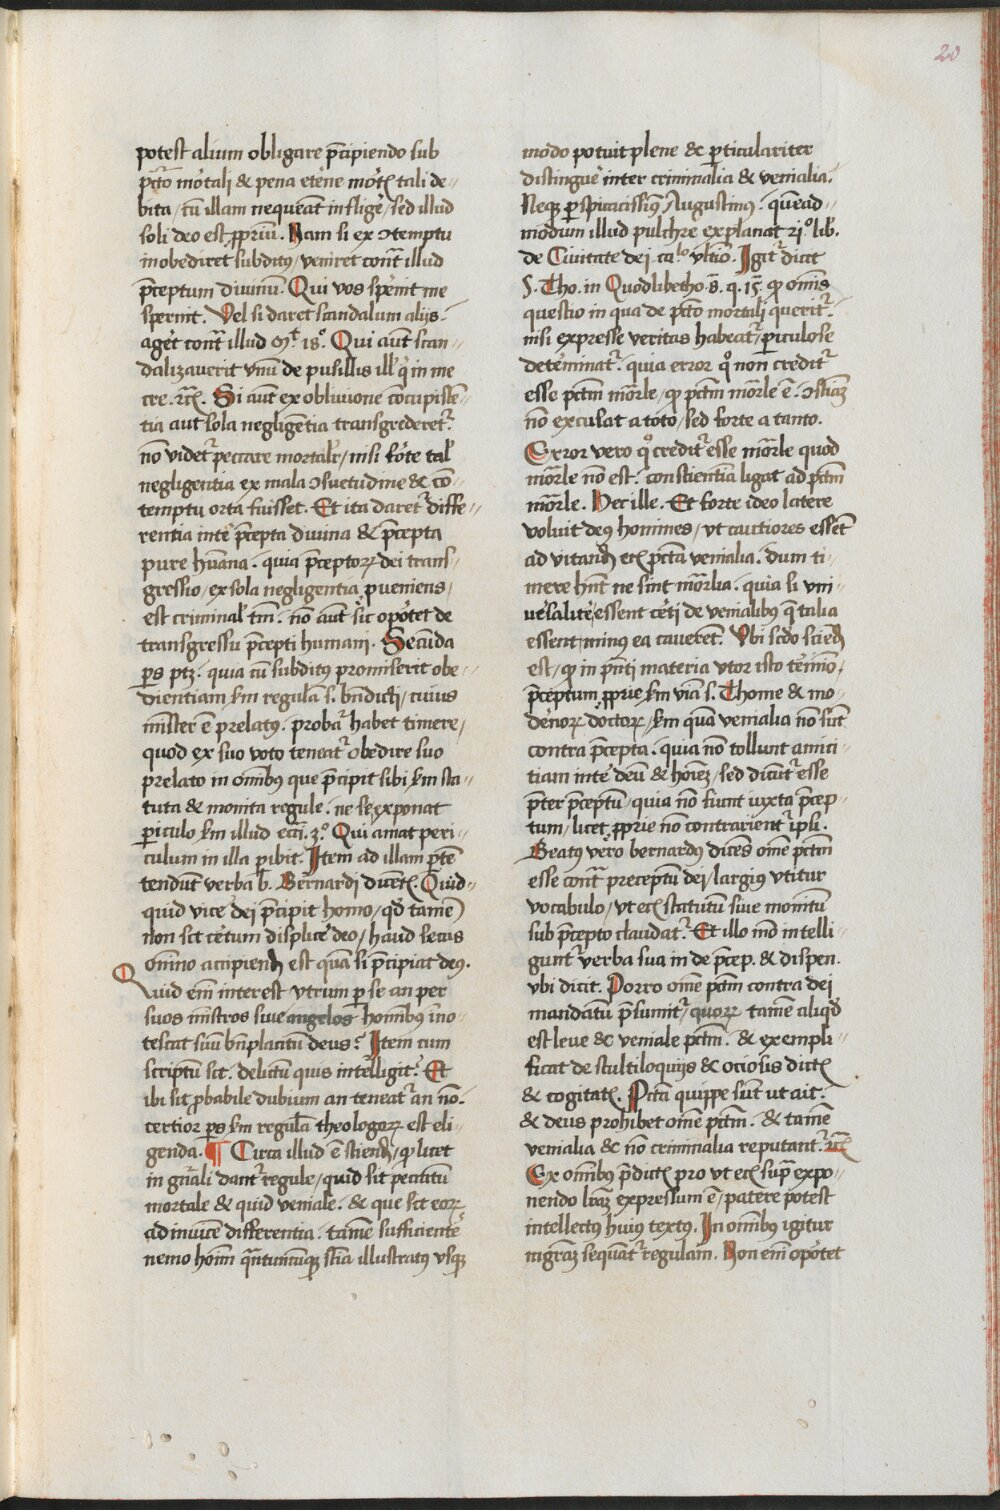 20
potest alium obligare p̄cipiendo sub
pctō mōtali & pena etēne mōtꝭ tali de¬
bita / cū illam nequeant inflige᷑ / sed illud
soli deo est ꝓpriū. Nam si ex ↄtemptu
inobediret subditꝰ / veniret cont᷑ illud
p̄ceptum diuinū. Qui vos sp̄nit me
spernit. Vel si daret scandalum alijs.
aget cont᷑ illud Mt̄ 18°. Qui aūt scan¬
dalizauerit vnū de pusillis ill' q̄ in me
cre. ꝛcꝭ. Si aūt ex obliuione cōcupiscē¬
tia aut sola negligentia transgrederet᷑.
nō videt᷑ peccare mortalr̄ / nisi fōte tal'
negligentia ex mala ↄsuetudine & cō¬
temptu orta fuisset. Et ita daret᷑ diffe¬
rentia inte᷑ p̄cepta diuina & p̄cepta
pure hūana. quia p̄ceptoꝝ dei trans¬
gressio / ex sola negligentia ꝓueniens /
est criminal' tm̄. nō aūt sic opōtet de
transgressu p̄cepti humani. Secūda
ꝑs ptꝫ. quia cū subditꝰ promiserit obe¬
dientiam scd̄m regulā s. bn̄dicti / cuius
mīster ē prelatꝰ. probat᷑ habet timere /
quod ex suo voto teneat᷑ obedire suo
prelato in omībus que p̄cipit sibi scd̄m sta¬
tuta & monita regule. ne se exponat
ꝑiculo scd̄m illud ecc̄i. 3°. Qui amat peri¬
culum in illa ꝑibit. Item ad illam ꝑtē
tendūt verba b. Bernardi dicētꝭ. Quid¬
quid vice dei p̄cipit homo / qd̄ tamē
non sit cētum displice᷑ deo / haud secus
om̄ino accipiend̄ est quā si p̄cipiat deꝰ.
Quid em̄ interest vtrum per se an per
suos mīstros siue angelos homībus īno¬
tescat suū bn̄placitū deus? Item cum
scriptū sit. delictū quis intelligit? Et
ibi sit ꝓbabile dubium an teneat᷑ an nō.
certior ꝑs scd̄m regulā theologoꝝ est eli¬
genda. ¶ Circa illud ē sciend̄ / ꝙ licet
in gn̄ali dant᷑ regule / quid sit peccatū
mortale & quid veniale. & que sit eoꝝ
adinuicē differentia. tamē sufficiente᷑
nemo hoīm q̄ntumcūqꝫ scīa illustratus vsqꝫ
modo potuit plene & ꝑticulariter
distingue᷑ inter criminalia & venialia.
Neqꝫ ꝑspicacissimꝰ Augustinus. quēad¬
modum illud pulchre explanat 21° lib'.
de Ciuitate dei. ca͡lo vltīo. Igit᷑ dicit
S. Tho. in Quodlibetho. 8. q. 15. ꝙ om̄is
questio in qua de pctō mortali querit᷑.
nisi expresse veritas habeat᷑ / ꝑiculose
det̄minat᷑. quia error q° non credit᷑
esse pctm̄ mōrle / ꝙ pctm̄ mōrle ē. ↄsciāꝫ
nō excusat a toto / sed forte a tanto.
Error vero q° credit᷑ esse mōrle quod
mōrle nō est. conscientia ligat ad pctm̄
mōrle. Hec ille. Et forte ideo latere
voluit deꝰ homines / vt cautiores essēt
ad vitand̄ ecꝭ pctā venialia. dum ti¬
mere hn̄t ne sint mōrlia. quia si vni¬
u̓salite᷑ essent cēti de venialibꝰ q̄ talia
essent / minꝰ ea cauerēt. Vbi scd̄o sciēd̄
est / ꝙ in p̄nti materia vtor isto t̄mīo.
p̄ceptum ꝓprie scd̄m viā s. Thome & mo¬
dērnoꝝ doctoꝝ / scd̄m quā venialia nō sūt
contra p̄cepta. quia nō tollunt amici¬
tiam inte᷑ deū & hoīeꝫ / sed dicūt᷑ esse
p̄ter p̄ceptū / quia nō fiunt iuxta p̄cep¬
tum / licet ꝓprie nō contrarient᷑ ipsi.
Beatꝰ vero bernardꝰ dicēs om̄e pctm̄
esse cont᷑ preceptū dei / largiꝰ vtitur
vocabulo / vt ecꝭ statutū siue monitū
sub p̄cepto claudat᷑. Et illo mō intelli¬
gunt᷑ verba sua in de p̄cep. & dispen.
vbi dicit. Porro om̄e pctm̄ contra dei
mandatū p̄sumit᷑ / quoꝝ tamē aliqd̄
est leue & veniale pctm̄. & exempli¬
ficat de stultiloquijs & ociosis dictꝭ
& cogitatꝭ. Pctā quippe sūt ut ait.
& deus prohibet om̄e pctm̄. & tamē
venialia & nō criminalia reputant᷑. ꝛcꝭ
Ex omībus p̄dictꝭ pro vt ecꝭ sup̄ expo¬
nendo lr̄aꝫ expressum ē / patere potest
intellectꝰ huiꝰ textꝰ. In omībus igitur
migrāꝫ sequāt᷑ regulam. Non em̄ opōtet